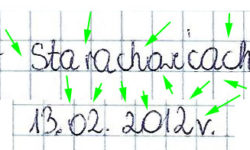 Starachowicach
13.02.2012r.